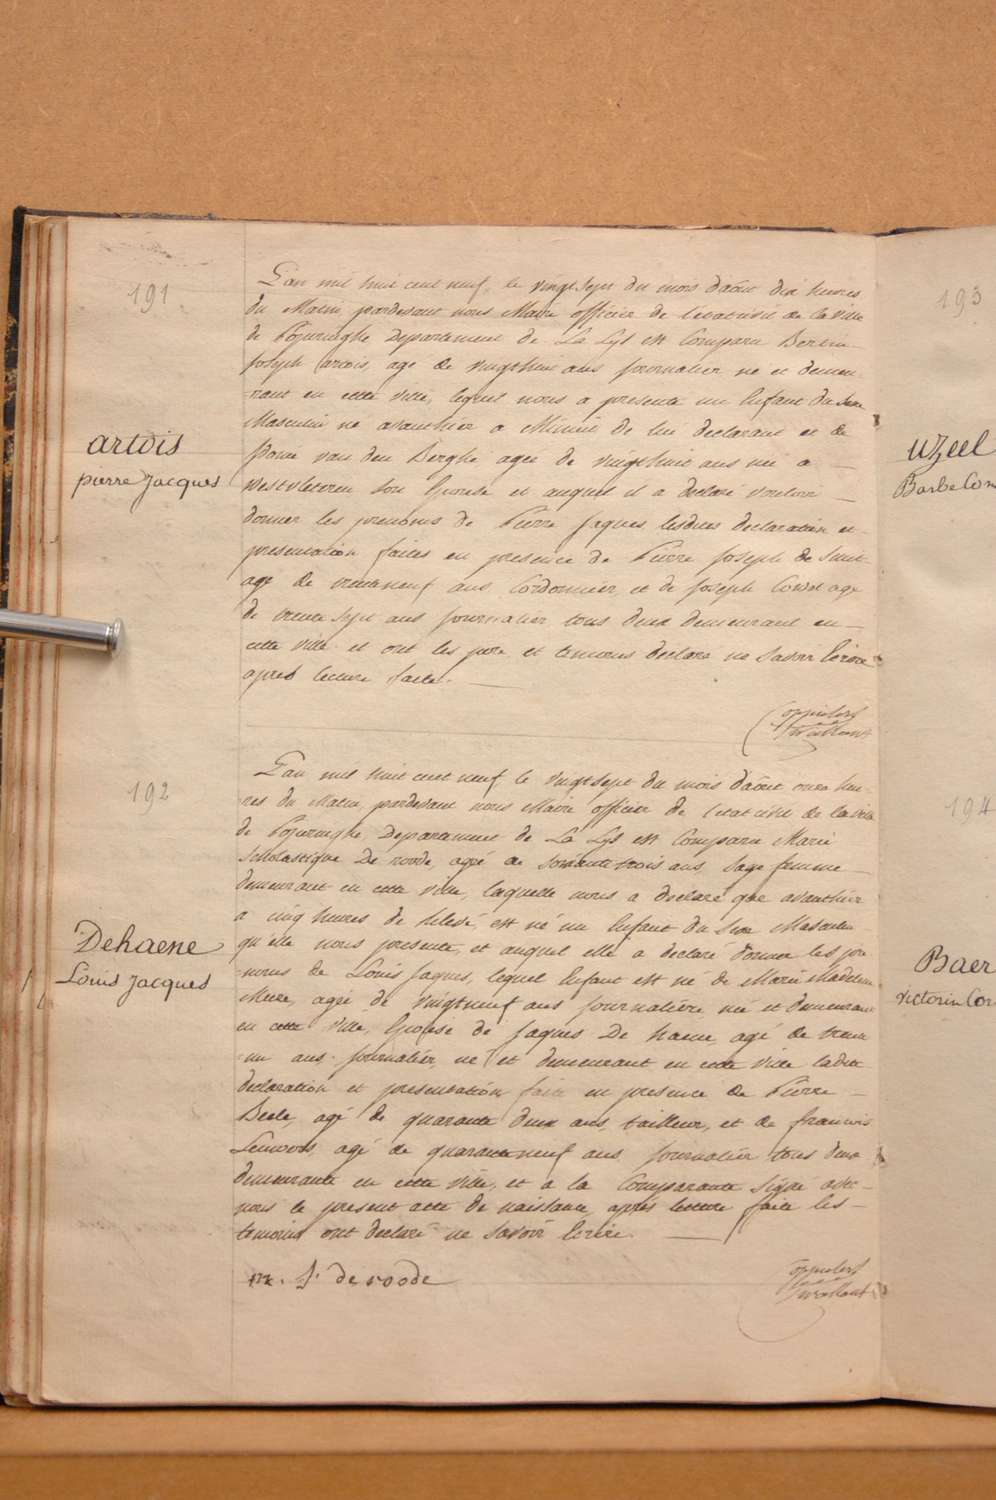 191
artois
pierre Jacques
L'an mil huit cent neuf, le vingt sept du mois d'août dix heures
du Matin, pardevant nous Maire officier de l'etat civil de la ville
de Poperinghe Departement de La Lys est Comparu
Joseph artois, age de vingthuit ans journalier né et demeu-
rant en cette ville, lequel nous a presenté un Enfant du Sexe
Masculin né avanthier a Minuit de lui declarant et de
van den Berghe agee de vingthuit ans née a
westvleteren son Epouse et auquel il a declaré vouloir
donner les prenoms de Pierre Jaques lesdites declaration et
presentation faites en presence de Pierre Joseph de Smet
age de trenteneuf ans Cordonnier, et de Joseph age
de trente sept ans journalier tous deux demeurant en
cette ville et ont les pere et temoins declaré ne Savoir Ecrire
apres lecture faite.
192
Dehaene
Louis Jacques
L'an mil huit cent neuf, le vingt sept du mois d'août onze heu-
res du Matin, pardevant nous Maire officier de l'etat civil de la ville
de Poperinghe, Departement de La Lys est Comparu Marie
Scholastique De roode, agée de soixante trois ans, Sage femme
demeurant en cette ville, laquelle nous a declaré que avanthier
a cinq heures de relevé, est né un Enfant du Sexe Masculin
qu'elle nous presente, et auquel elle a declaré donner les pre
noms de Louis Jaques, lequel Enfant est né de Marie Madeleine
agée de vingtneuf ans journaliere née et demeurant
en cette ville, Epouse de Jaques De haene agé de trente
un ans journalier, né et demeurant en cette ville ladite
declaration et presentation faite en presence de Pierre
Beele, agé de quarante deux ans, tailleur, et de francois
agé de quaranteneuf ans, journalier tous deux
demeurants en cette ville, et a la Comparante Signé avec
nous le present acte de naissance, apres lecture faite les
temoins ont declaré ne savoir Ecrire.
m. S. de roode
193
uzeel
Barbe
194
Baer
victorin Cor